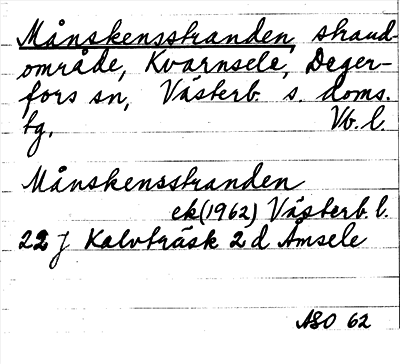 Månskensstranden, strand-
område, Kvarnsele, Deger-
fors sn, Västerb. s. doms.
tg, Vb. l.
Månskensstranden
ek (1962) Västerb. l.
22 J Kalvträsk 2 d Åmsele
ASO 62